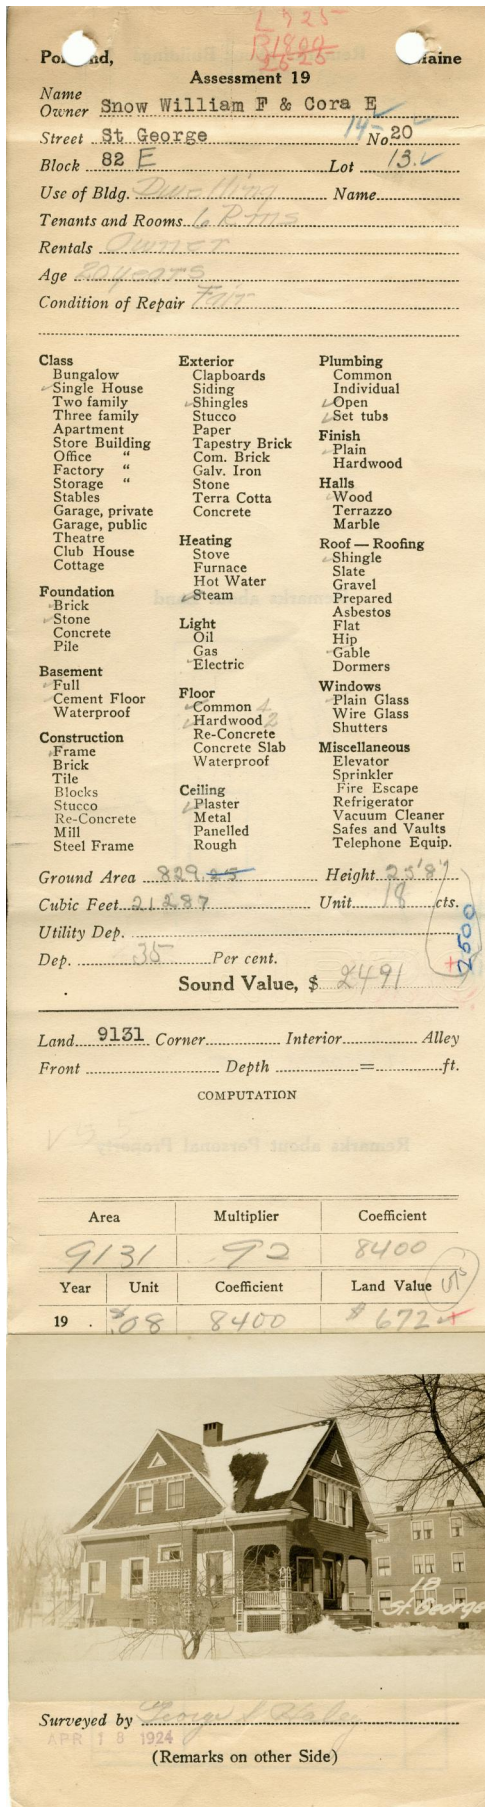 L 725
B 1800
2525
Portland, Maine
Assessment 19
Name
Owner Snow William F & Cora E
Street St George 14- No. 20
Block 82 E Lot 13.
Use of Bldg. Dwelling Name
Tenants and Rooms 6 Rms
Rentals Owner
Age 20 years
Condition of Repair Fair
Class
Bungalow
Single House
Two family
Three family
Apartment
Store Building
Office "
Factory "
Storage "
Stables
Garage, private
Garage, public
Theatre
Club House
Cottage
Foundation
Brick
Stone
Concrete
Pile
Basement
Full
Cement Floor
Waterproof
Construction
Frame
Brick
Tile
Blocks
Stucco
Re-Concrete
Mill
Steel Frame
Exterior
Clapboards
Siding
Shingles
Stucco
Paper
Tapestry Brick
Com. Brick
Galv. Iron
Stone
Terra Cotta
Concrete
Heating
Stove
Furnace
Hot Water
Steam
Light
Oil
Gas
Electric
Floor
Common 4
Hardwood 2
Re-Concrete
Concrete Slab
Waterproof
Ceiling
Plaster
Metal
Panelled
Rough
Plumbing
Common
Individual
Open
Set tubs
Finish
Plain
Hardwood
Halls
Wood
Terrazzo
Marble
Roof — Roofing
Shingle
Slate
Gravel
Prepared
Asbestos
Flat
Hip
Gable
Dormers
Windows
Plain Glass
Wire Glass
Shutters
Miscellaneous
Elevator
Sprinkler
Fire Escape
Refrigerator
Vacuum Cleaner
Safes and Vaults
Telephone Equip.
Ground Area 829.25 Height 25'8"
Cubic Feet 21287 Unit 18 cts.
Utility Dep.
Dep. 35 Per cent.
2500
Sound Value, $ 2491
Land 9131 Corner Interior Alley
Front Depth = ft.
COMPUTATION
Area Multiplier Coefficient
9131 .92 8400
Year Unit Coefficient Land Value
19 . .08 8400 $ 672
1B
St. George
Surveyed by George S Haley
APR 18 1924
(Remarks on other Side)